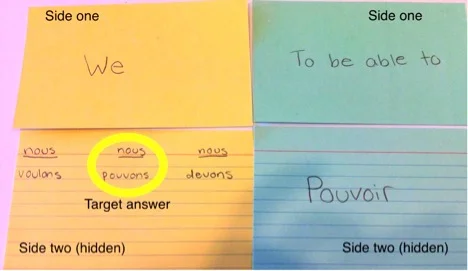 Side one
We
Side one
To be able to
nous nous nous
voulons pouvons devons
Target answer
Side two (hidden)
Pouvoir
Side two (hidden)